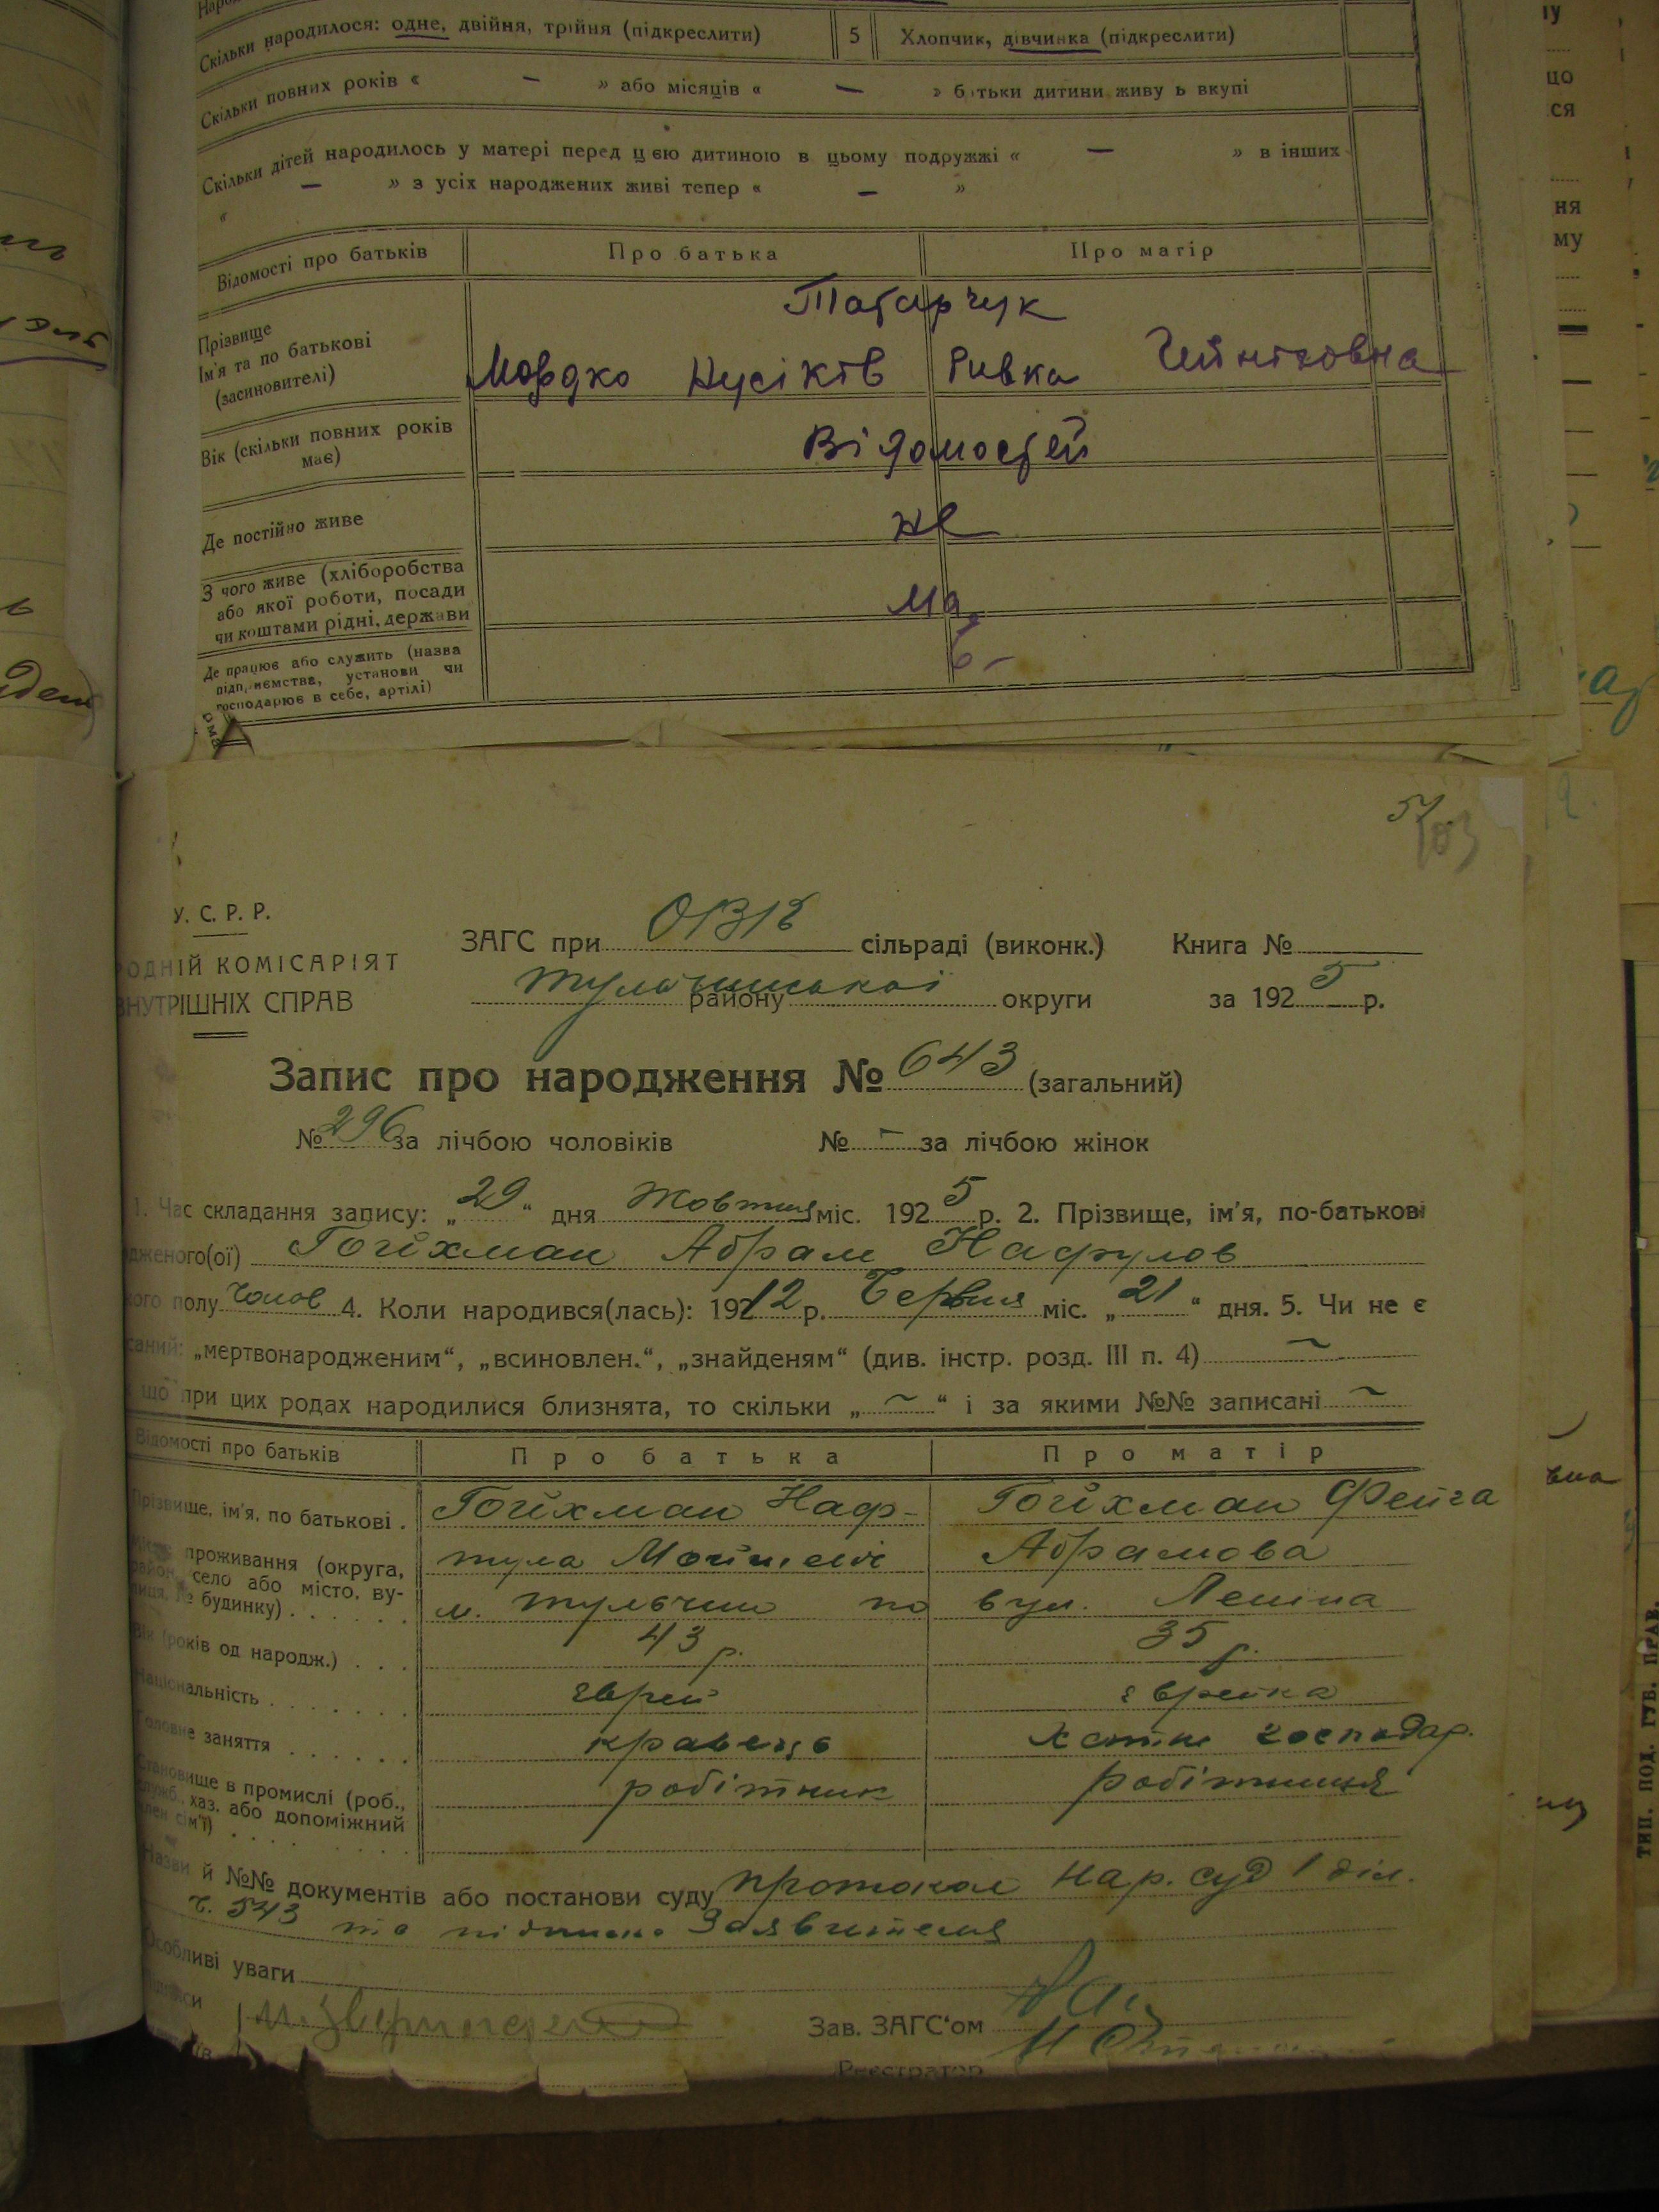 Скільки народилося: одне, двійня, трійня (підкреслити) 5 Хлопчик, дівчинка (підкреслити)
Скільки повних років « — » або місяців « — » батьки дитини живуть вкупі
Скільки дітей народилось у матері перед цією дитиною в цьому подружжі « — » в інших
« — » з усіх народжених живі тепер « — »
Відомості про батьків Про батька Про матір
Прізвище
Ім'я та по батькові
(засиновителі)
Татарчук
Мордко Нусіків Ривка
Вік (скільки повних років
має)
Відомостей
Де постійно живе
не
З чого живе (хліборобства
або якої роботи, посади
чи коштами рідні, держави
ма
Де працює або служить (назва
підприємства, установи чи
господарює в себе, артілі)
У. С. Р. Р.
ОДНІЙ КОМІСАРІЯТ
ВНУТРІШНІХ СПРАВ
ЗАГС при сільраді (виконк.) Книга №
району Тульчинської округи за 1925 р.
Запис про народження № 643 (загальний)
№ 296 за лічбою чоловіків № – за лічбою жінок
1. Час складання запису: „29“ дня Жовтня міс. 1925 р. 2. Прізвище, ім'я, по-батькові
дженого(ої) Гойхман Абрам Нафулов
кого полу Чолов 4. Коли народився(лась): 1912 р. Червня міс. „21“ дня. 5. Чи не є
саний: „мертвонародженим“, „всиновлен.“, „знайденям“ (див. інстр. розд. III п. 4) ~
що при цих родах народилися близнята, то скільки „~“ і за якими №№ записані ~
Відомості про батьків Про батька Про матір
Прізвище, ім'я, по батькові . Гойхман Наф- Гойхман Фейга
проживання (округа, тула Абрамова
район, село або місто, ву-
лиця, № будинку) . . . . . . м. Тульчин по вул. Леніна
Вік (років од народж.) . . . 43 р. 35 р.
Національність . . . . . . . еврей еврейка
Головне заняття . . . . . . кравець хатне господар.
Становище в промислі (роб., робітник робітниця
служб., хаз. або допоміжний
член сім'ї)
Назви й №№ документів або постанови суду протокол Нар. суд 1 діл.
ч. 543 та заявителя
Особливі уваги
Зав. ЗАГС'ом
Реєстратор
ТИП. ПОД. ГУБ. ПРАВ.